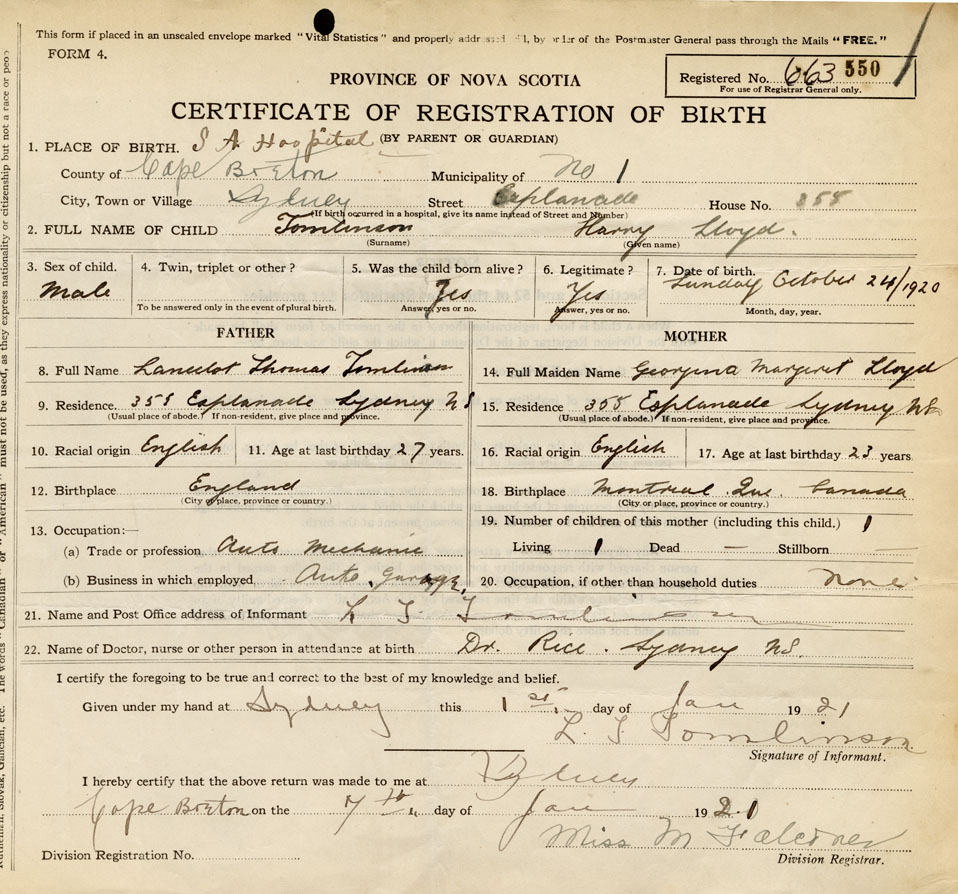 This form if placed in an unsealed envelope marked "Vital Statistics" and properly addressed, by order of the Postmaster General pass through the Mails "FREE."
FORM 4.
PROVINCE OF NOVA SCOTIA
Registered No. 663 550
For use of Registrar General only.
CERTIFICATE OF REGISTRATION OF BIRTH
(BY PARENT OR GUARDIAN)
1. PLACE OF BIRTH. S A Hospital
County of Cape Breton Municipality of No 1
City, Town or Village Sydney Street Esplanade House No. 358
(If birth occurred in a hospital, give its name instead of Street and Number)
2. FULL NAME OF CHILD Tomlinson Harry Lloyd.
(Surname) (Given name)
3. Sex of child. Male
4. Twin, triplet or other?
To be answered only in the event of plural birth.
5. Was the child born alive? Yes
Answer, yes or no.
6. Legitimate? Yes
Answer, yes or no.
7. Date of birth. Sunday October 24/1920
Month, day, year.
FATHER
8. Full Name Lancelot Thomas Tomlinson
9. Residence. 358 Esplanade Sydney N S
(Usual place of abode? If non-resident, give place and province.
10. Racial origin English 11. Age at last birthday 27 years.
12. Birthplace England
(City or place, province or country.)
13. Occupation:—
(a) Trade or profession Auto Mechanic
(b) Business in which employed Auto Garage.
MOTHER
14. Full Maiden Name Georgina Margaret Lloyd
15. Residence 358 Esplanade Sydney NS
(Usual place of abode.) If non-resident, give place and province.
16. Racial origin English 17. Age at last birthday 23 years
18. Birthplace Montreal Que. Canada
(City or place, province or country.)
19. Number of children of this mother (including this child.) 1
Living 1 Dead — Stillborn —
20. Occupation, if other than household duties none
21. Name and Post Office address of Informant L T Tomlinson
22. Name of Doctor, nurse or other person in attendance at birth Dr. Rice. Sydney NS.
I certify the foregoing to be true and correct to the best of my knowledge and belief.
Given under my hand at Sydney this 1st day of Jan 1921
L. T Tomlinson
Signature of Informant.
I hereby certify that the above return was made to me at Sydney
Cape Breton on the 7th day of Jan 1921
Miss M Falconer
Division Registrar.
Division Registration No.